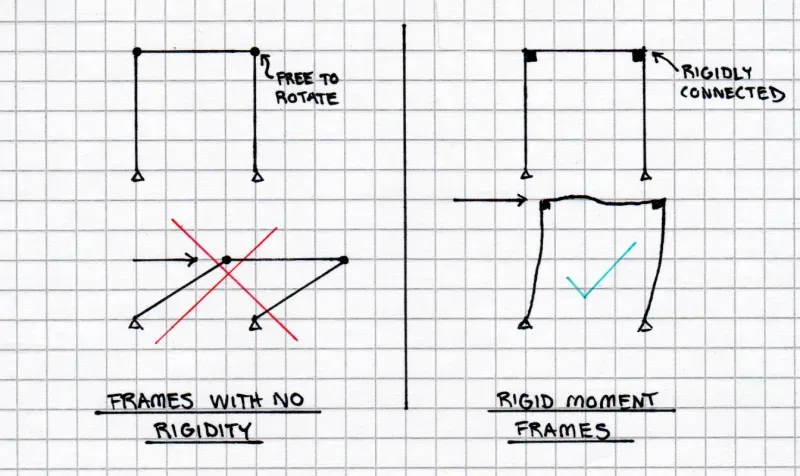 FREE TO
ROTATE
RIGIDLY
CONNECTED
FRAMES WITH NO
RIGIDITY
RIGID MOMENT
FRAMES